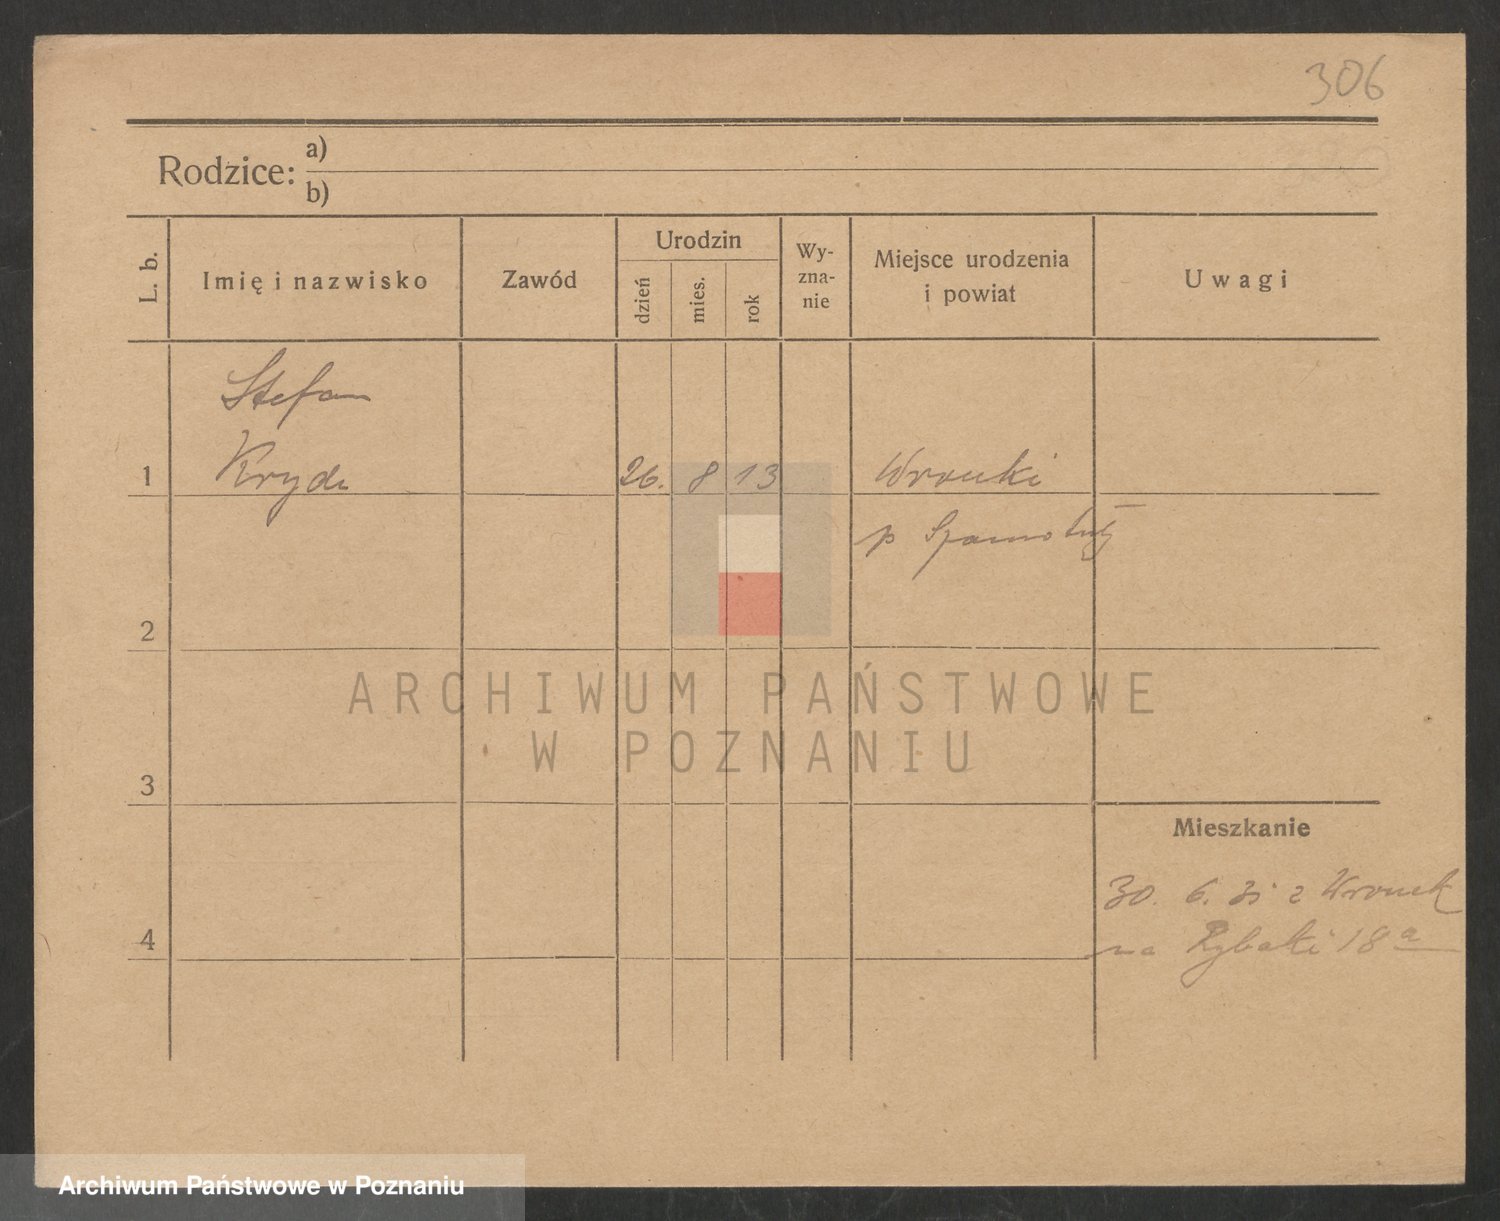 306
Rodzice: a)
b)
L. b. Imię i nazwisko Zawód Urodzin dzień mies. rok Wy-zna-nie Miejsce urodzenia i powiat Uwagi
Stefan
1 Kryde 26. 8 13 Wronki
p Szamotuły
2
3
Mieszkanie
30. 6. 31 z Wronek
4 na Rybaki 18a
ARCHIWUM PAŃSTWOWE
W POZNANIU
Archiwum Państwowe w Poznaniu